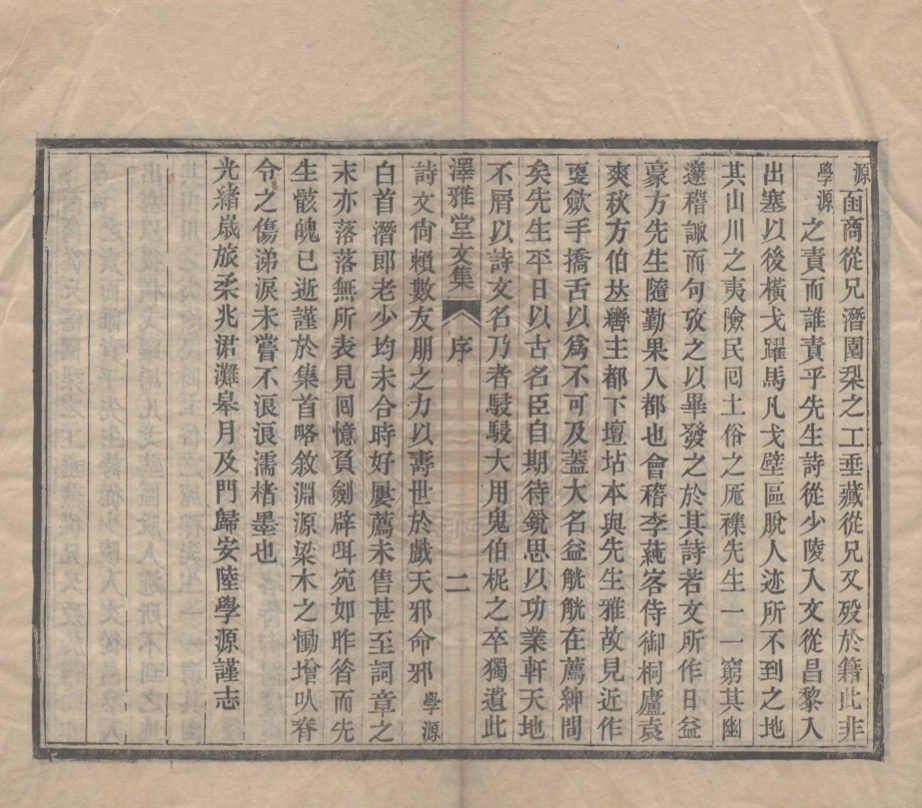 源亟商從兄潛園槧之工垂藏從兄又殁於籍此非
學源之責而誰責乎先生詩從少陵入文從昌黎入
出塞以後橫戈躍馬凡戈壁區脫人迹所不到之地
其山川之夷險民回土俗之厖襍先生一一窮其幽
邃稽諏而句攷之以畢發之於其詩若文所作日益
豪方先生隨勤果入都也會稽李蒓客侍御桐廬袁
爽秋方伯𠀤轡主都下壇坫本與先生雅故見近作
戞歛手撟舌以爲不可及蓋大名益觥觥在薦紳間
矣先生平日以古名臣自期待銳思以功業軒天地
不屑以詩文名乃者駸駸大用鬼伯柅之卒獨遺此
澤雅堂文集 序 二
詩文尙賴數友朋之力以壽世於戲天邪命邪學源
白首潛郎老少均未合時好屢薦未售甚至詞章之
末亦落落無所表見回憶負劍辟咡宛如昨昝而先
生骸魄已逝謹於集首略敘淵源梁木之慟增叺脊
令之傷涕淚未嘗不浪浪濡楮墨也
光緒嵗旅柔兆涒灘皋月及門歸安陸學源謹志